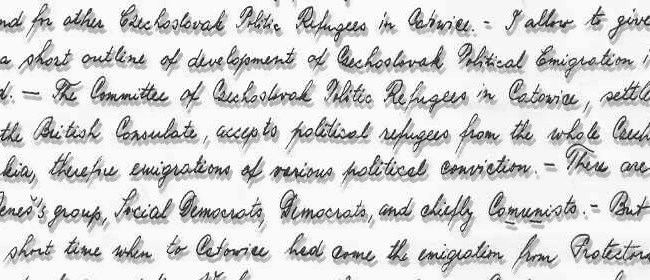 nd for other Czechoslovak Politic Refugees in Catowice. - I allow to give
a short outline of development of Czechoslovak Political Emigration i
d. - The Committee of Czechoslovak Politic Refugees in Catowice, settle
the British Consulate, accepts political refugees from the whole Czech
kia, therefore emigrations of various political conviction. - There are
Beneš's group, Social Democrats, Democrats, and chiefly Comunists. - But
short time when to Catowice had come the emigration from Protectora